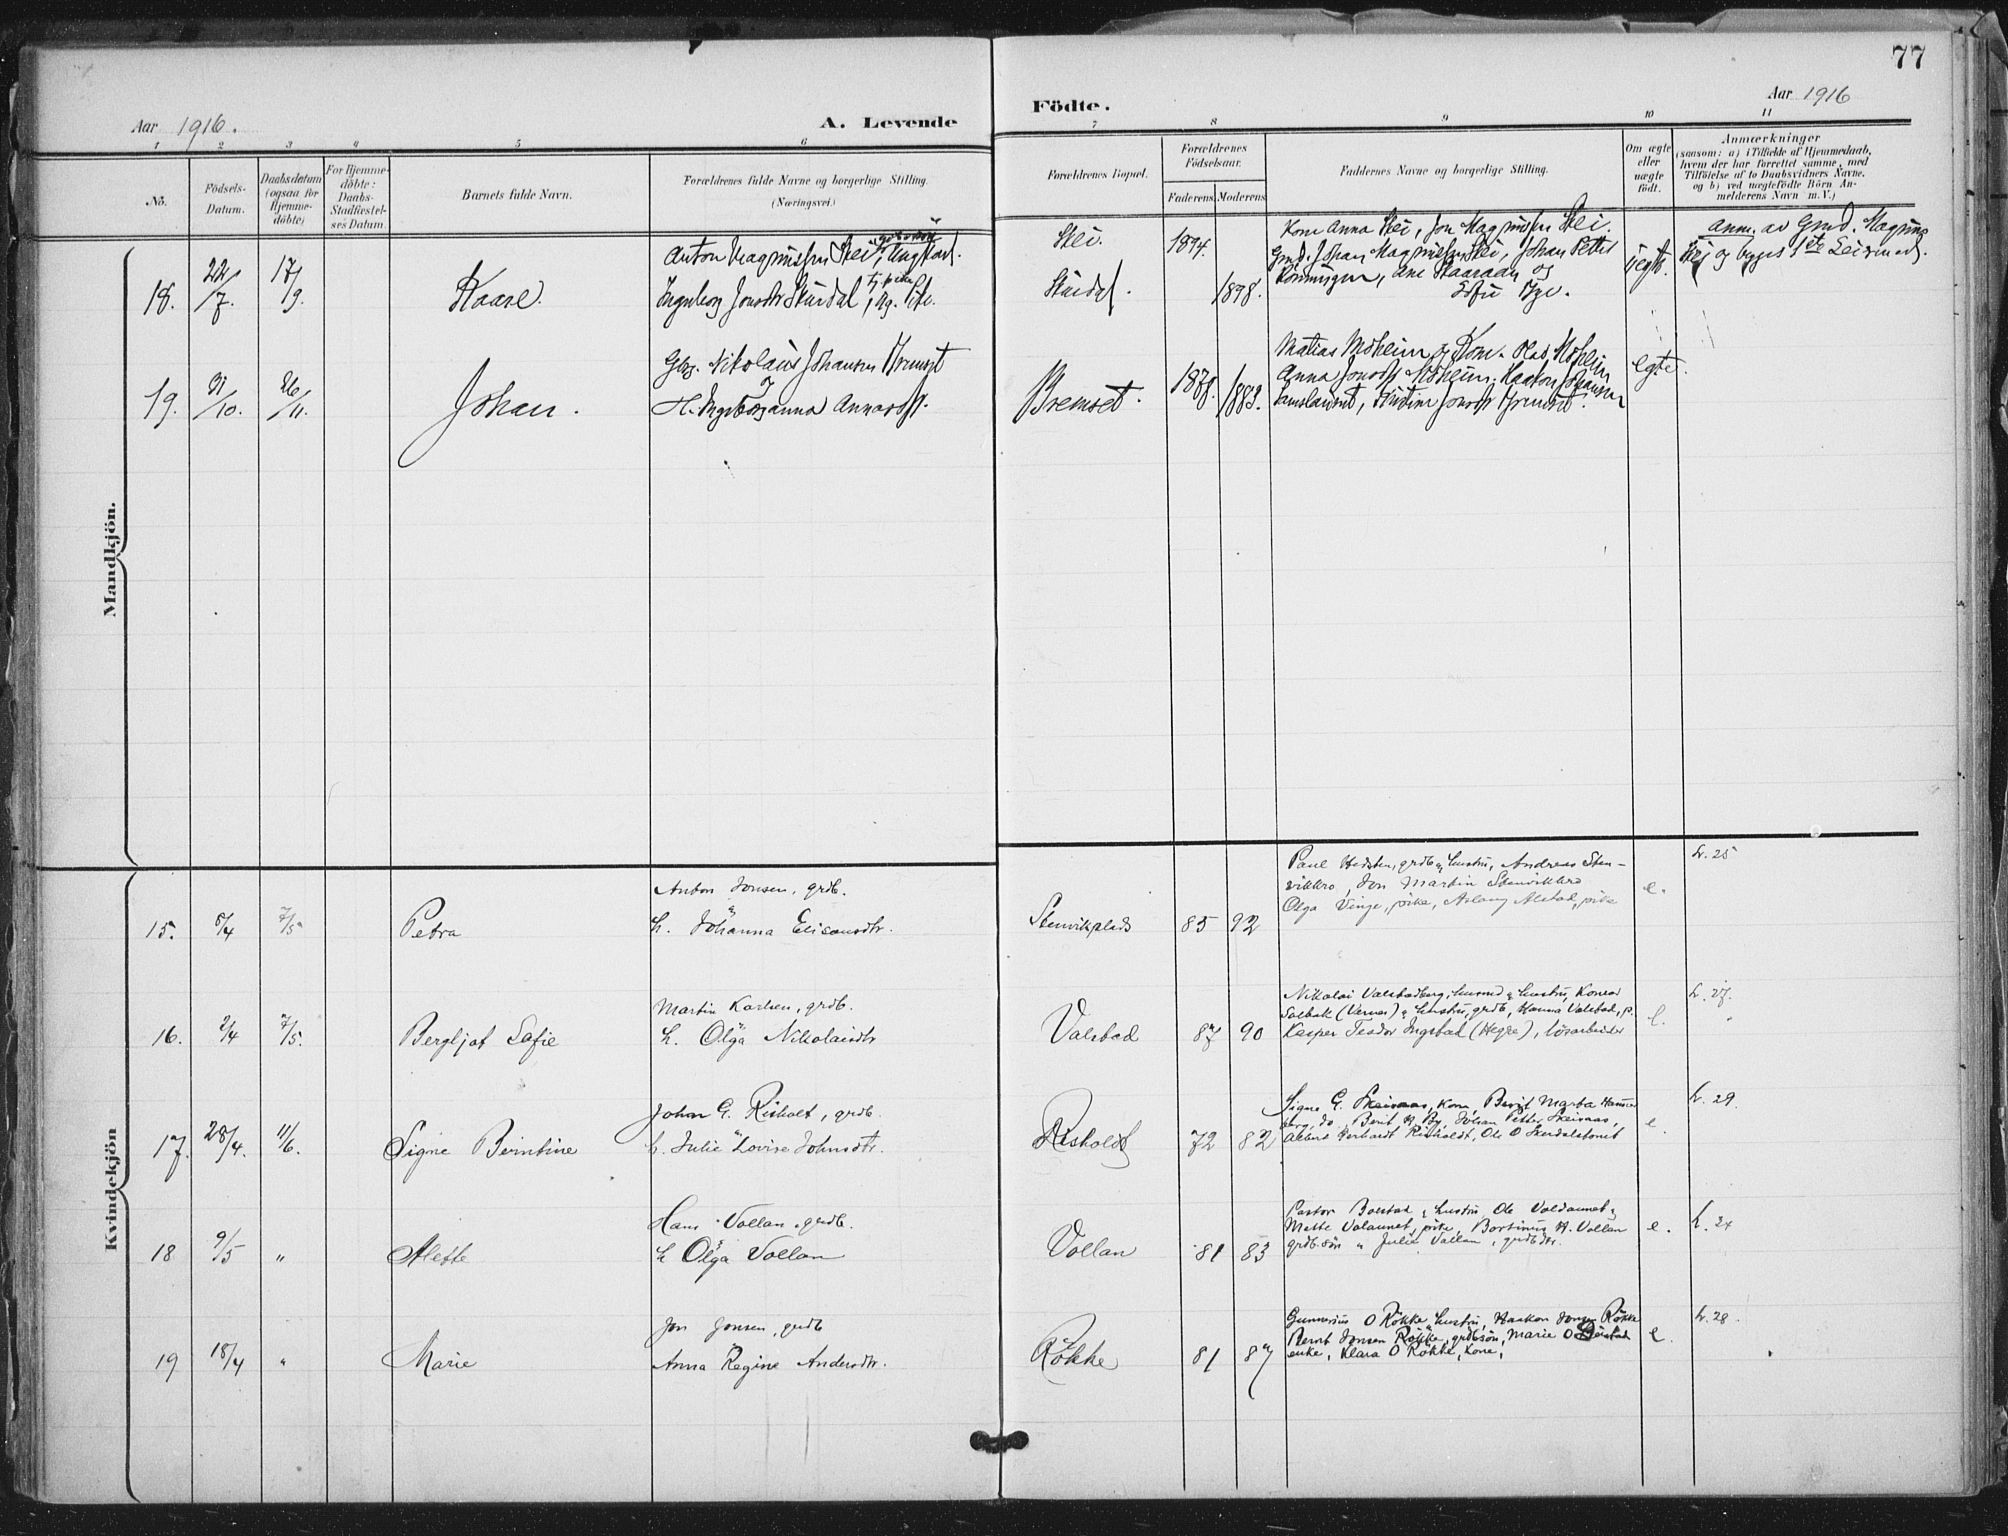 77
Aar 1916.
A. Levende
Födte.
Aar 1916
1 2 3 4 5 6 7 8 9 10 11
No.
Födsels-
Datum.
Daabsdatum
(ogsaa for
Hjemme-
döbte)
For Hjemme-
döbte:
Daabs-
Stadfæstel-
ses Datum.
Barnets fulde Navn.
Forældrenes fulde Navne og borgerlige Stilling.
(Næringsvei.)
Forældrenes Bopæl.
Forældrenes
Födselsaar.
Faderens Moderens
Faddernes Navne og borgerlige Stilling.
Om ægte
eller
uægte
født.
Anmærkninger
(saasom: a) i Tilfælde af Hjemmedaab,
hvem der har forrettet samme, med
Tilföielse af to Daabsvidners Navne.
og b) ved uægtefödte Börn An-
melderens Navn m. V.)
Mandkjön.
18. 22/7. 17/9. Kaare.
Anton Magnussen Skei, Ungkarl.
Ingeborg Jonsdtr Stuedal, Pike.
Skei. 1894.
1898.
Kone Anna Skei, Jon Magnussen Skei.
Gmd. Johan Magnussen Skei, Johan Petter
og
uegte.
Anm. av Gmd. Magnus
Skei og
19. 31/10. 26/11. Johan.
Gbr. Nikolaus Johansen Bremset
H. Ingeborganna
Bremset. 1878. 1883.
Matias Moheim og Kone. Olas Moheim
Anna Moheim. Haakon Johansen
egte.
Kvindekjön
15. 8/4 7/5 Petra
Anton Jonsen, grdb.
h. Johanna Elisausdtr.
Stenvikplads 85 92
Paul Hedsten, grdb & hustru, Andreas Sten-
vikbro, Jon Martin Stenvikbro
Olga Vinge, pike, Aslaug Alstad, pike
e.
L. 25
16. 2/4 7/5. Bergljot Sofie
Martin Karlsen, grdb.
h. Olga Nikolaisdtr
Valstad 87 90
Nikolai Valstadberg, husmd & hustru, Konrad
Solbak (Værnes) & hustru, grdb, Hanna Valstad, p.
Kasper Teodor Ingstad (Hegre), lösarbeider
e.
L. 27.
17. 28/4. 11/6. Signe Berntine
Johan G. Risholt, grdb.
h. Julie Lovise Johnsdtr.
Risholdt 72 82
Signe G. Skeivaas, kone, Berit Marta Hammer
berg, do, Berit H. By, Johan Petter Skeivaas,
Albert Gerhardt Risholdt, Ole O
e.
L. 29.
18 9/5 „ Alette
Hans Vollan, grdb.
h Olga Vollan
Vollan 81 83
Pastor Bolstad & hustru, Ole Voldaunet &
Mette Volaunet, pike, Bortinus H. Vollan
grdb.sön & Julie Vollan, grdb.dtr.
e.
L. 24
19 18/4 „ Marie
Jon Jonsen, grdb
Anna Regine Andersdtr.
Rökke 81 87
Gunnerius O Rökke & hustru, Haakon Jonsen Rökke
Bernt Jonsen Rökke, grdbsön, Marie O
enke, Klara O Rökke, kone,
e.
L. 28.